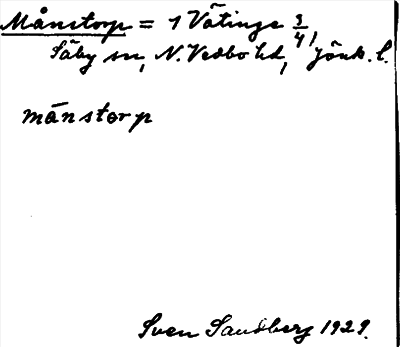 Månstorp = 1 Vätinge 3/4,
Säby sn, N. Vedbo hd, Jönk. l.
mānstorp
Sven Sandberg 1929.